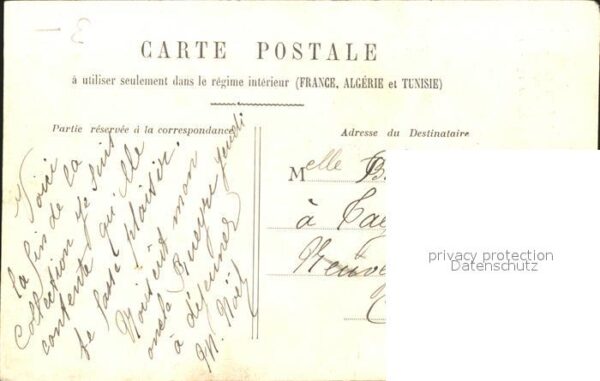 CARTE POSTALE
à utiliser seulement dans le régime intérieur (FRANCE, ALGÉRIE et TUNISIE)
Partie réservée à la correspondance
Adresse du Destinataire
Voici
la fin de la
collection je suis
contente qu'elle
te fasse plaisir.
mon
oncle jeudi
à déjeuner
M.
Melle B
à
privacy protection
Datenschutz